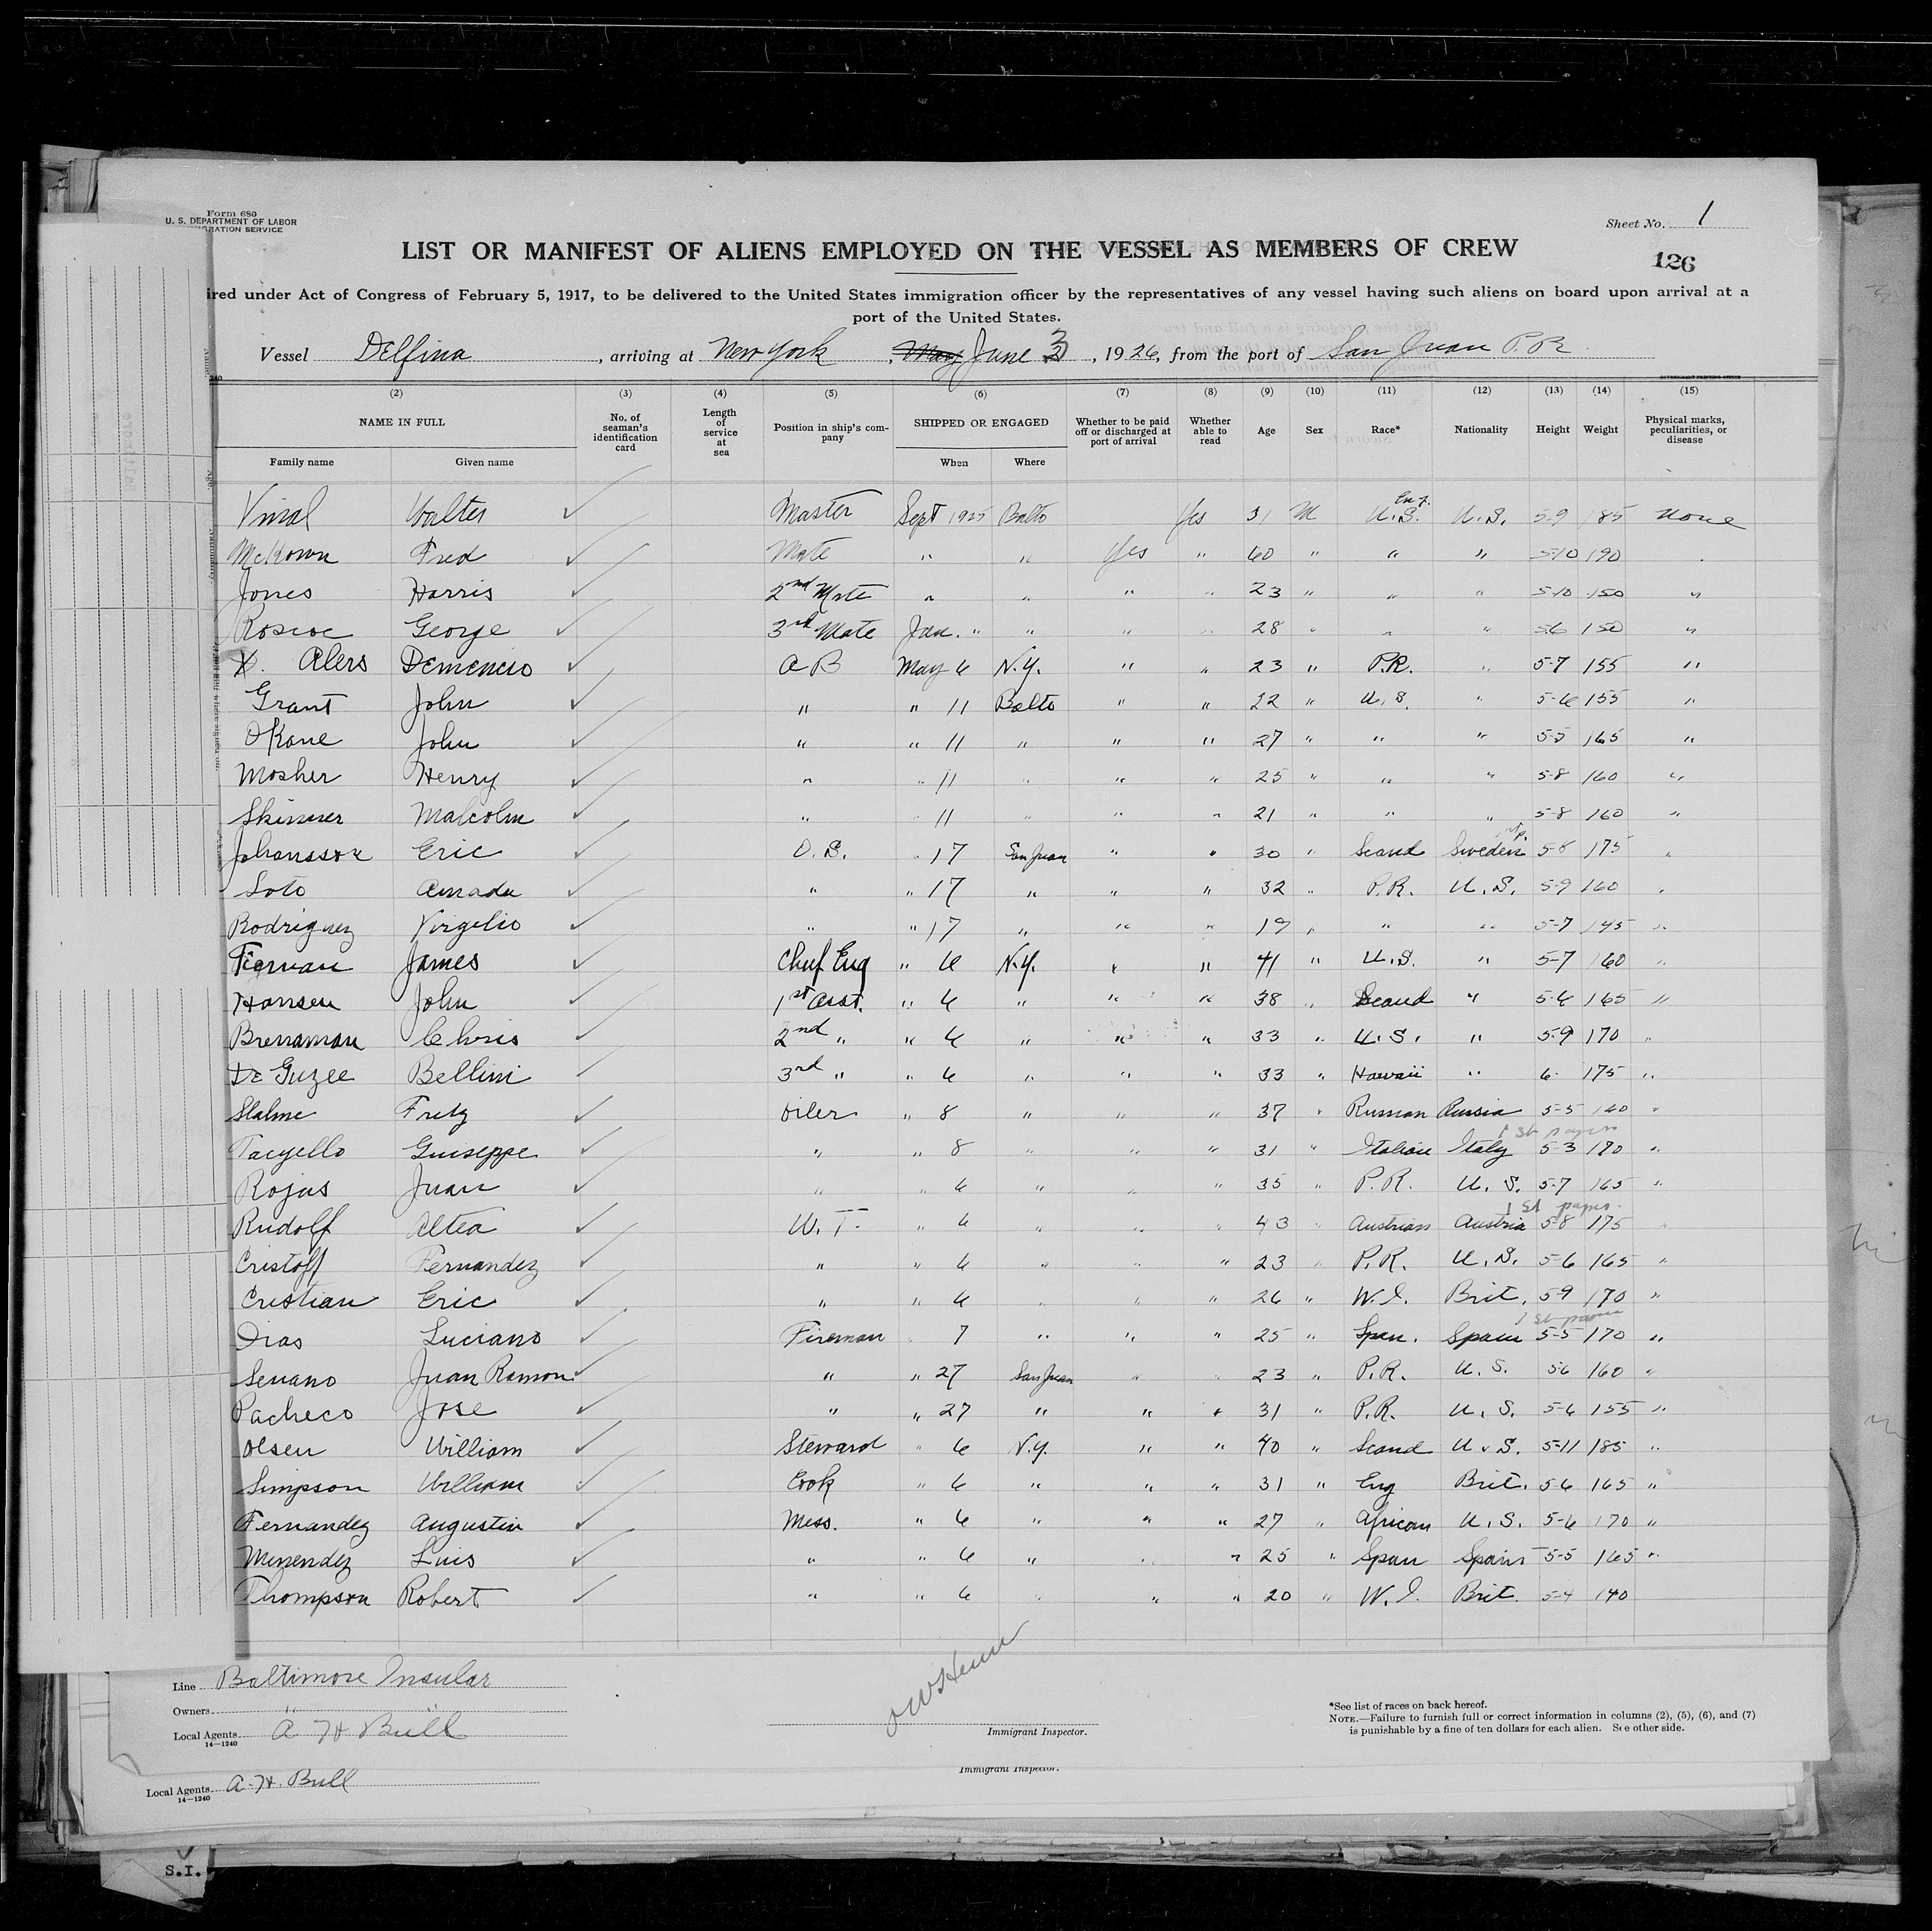 Form 680
U. S. DEPARTMENT OF LABOR
IGRATION SERVICE
Sheet No. 1
LIST OR MANIFEST OF ALIENS EMPLOYED ON THE VESSEL AS MEMBERS OF CREW
126
ired under Act of Congress of February 5, 1917, to be delivered to the United States immigration officer by the representatives of any vessel having such aliens on board upon arrival at a
port of the United States.
Vessel Delfina, arriving at New York, May June 3, 1926, from the port of San Juan P.R.
(2) (3) (4) (5) (6) (7) (8) (9) (10) (11) (12) (13) (14) (15)
NAME IN FULL No. of seaman's identification card Length of service at sea Position in ship's company SHIPPED OR ENGAGED Whether to be paid off or discharged at port of arrival Whether able to read Age Sex Race* Nationality Height Weight Physical marks, peculiarities, or disease
Family name Given name When Where
Vinal Walter ✓ Master Sept 1925 Balto Yes 31 M Eng. U.S. U.S. 5-9 185 None
McKown Fred ✓ Mate " " Yes " 60 " " " 5-10 190
Jones Harris ✓ 2nd Mate " " " " 23 " " " 5-10 150 "
Roscoe George ✓ 3rd Mate Jan. " " " " 28 " " " 5-6 150 "
X. Alers Demencio ✓ A B May 6 N.Y. " " 23 " P.R. " 5-7 155 "
Grant John ✓ " " 11 Balto " " 22 " U.S. " 5-6 155 "
OKane John ✓ " " 11 " " " 27 " " " 5-5 165 "
Mosher Henry ✓ " " 11 " " " 25 " " " 5-8 160 "
Skinner Malcolm ✓ " " 11 " " " 21 " " " 5-8 160 "
Johansson Eric ✓ O.S. " 17 San Juan " " 30 " Scand Sweden 5-8 175 "
Soto Amada ✓ " " 17 " " " 32 " P.R. U.S. 5-9 160 "
Rodriguez Virgelio ✓ " " 17 " " " 19 " " " 5-7 145 "
Tiernan James ✓ Chief Eng " 6 N.Y. " " 41 " U.S. " 5-7 160 "
Hansen John ✓ 1st Asst. " 6 " " " 38 " Scand " 5-6 165 "
Brenaman Chris ✓ 2nd " " 6 " " " 33 " U.S. " 5-9 170 "
De Guzee Bellini ✓ 3rd " " 6 " " " 33 " Hawaii " 6- 175 "
Slalme Fritz ✓ Oiler " 8 " " " 37 " Russian Russia 5-5 160 "
1 St papers
Tacyello Guiseppe ✓ " " 8 " " " 31 " Italian Italy 5-3 170 "
Rojas Juan ✓ " " 6 " " " 35 " P.R. U.S. 5-7 165 "
1 St paper
Rudolf Altea ✓ W.T. " 6 " " " 43 " Austrian Austria 5-8 175 "
Cristoff Fernandez ✓ " " 6 " " " 23 " P.R. U.S. 5-6 165 "
Cristian Eric ✓ " " 6 " " " 26 " W.I. Brit. 5-9 170 "
1 St paper
Dias Luciano ✓ Fireman " 7 " " " 25 " Span. Spain 5-5 170 "
Senano Juan Ramon ✓ " " 27 San Juan " " 23 " P.R. U.S. 5-6 160 "
Pacheco Jose ✓ " " 27 " " " 31 " P.R. U.S. 5-6 155 "
Olsen William ✓ Steward " 6 N.Y. " " 40 " Scand U.S. 5-11 185 "
Simpson William ✓ Cook " 6 " " " 31 " Eng Brit. 5-6 165 "
Fernandez Augustin ✓ Mess. " 6 " " " 27 " African U.S. 5-6 170 "
Menendez Luis ✓ " " 6 " " " 25 " Span Spain 5-5 165 "
Thompson Robert ✓ " " 6 " " " 20 " W.I. Brit. 5-4 140
Line Baltimore Insular
Owners "
Local Agents A H Bull
14—1240
Immigrant Inspector.
*See list of races on back hereof.
NOTE.—Failure to furnish full or correct information in columns (2), (5), (6), and (7)
is punishable by a fine of ten dollars for each alien. See other side.
Immigrant Inspector.
Local Agents A. H. Bull
14—1240
S.I.